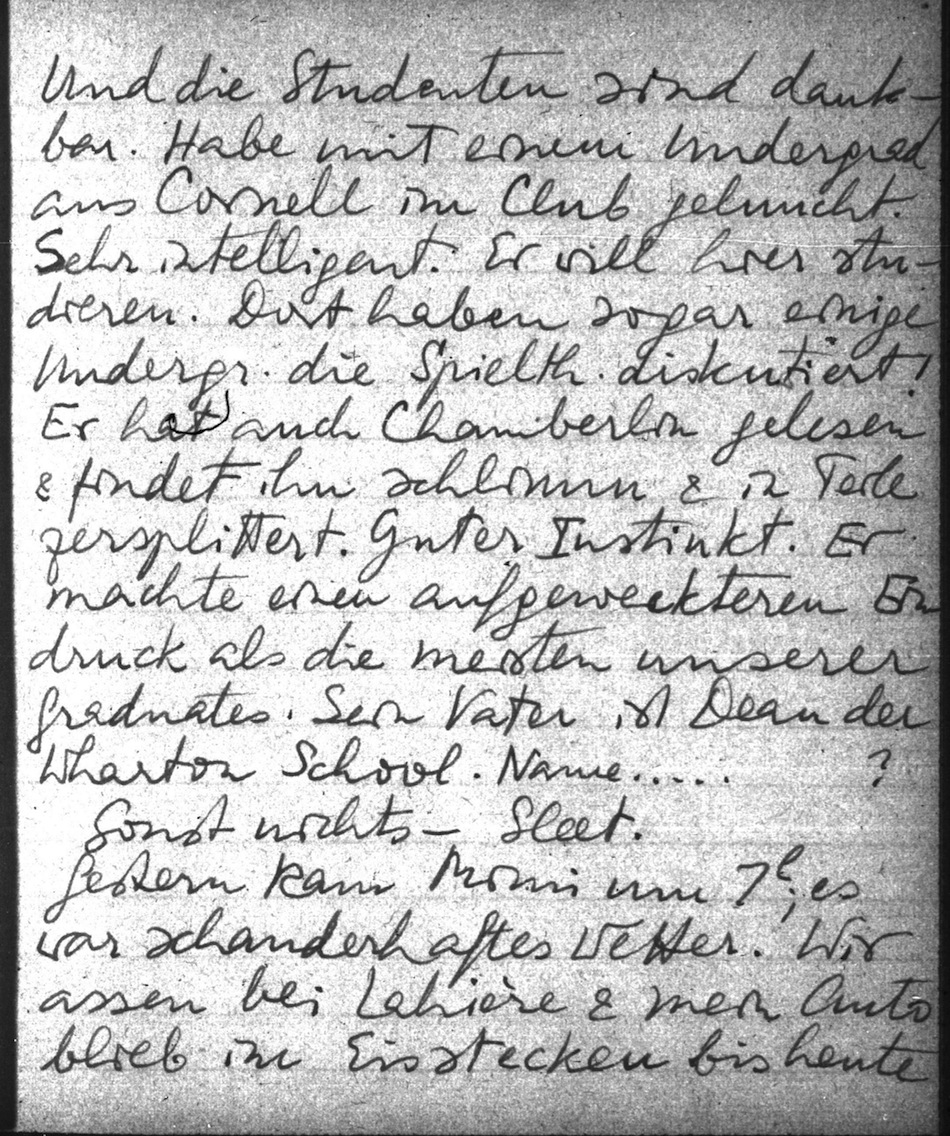 Und die Studenten sind dank-
bar. Habe mit einem Undergrad
aus Cornell im Club geluncht.
Sehr intelligent. Er will hier stu-
dieren. Dort haben sogar einige
Undergr. die Spielth. diskutiert!
Er hat auch Chamberlin gelesen
& findet ihn schlimm & in Teile
zersplittert. Guter Instinkt. Er
machte einen aufgeweckteren Ein
druck als die meisten unserer
graduates. Sein Vater ist Dean der
Wharton School. Name..... ?
Sonst nichts – Sleet.
Gestern kam Mimi um 7h; es
war schauderhaftes Wetter. Wir
assen bei Lahière & mein Auto
blieb im Eis stecken bis heute